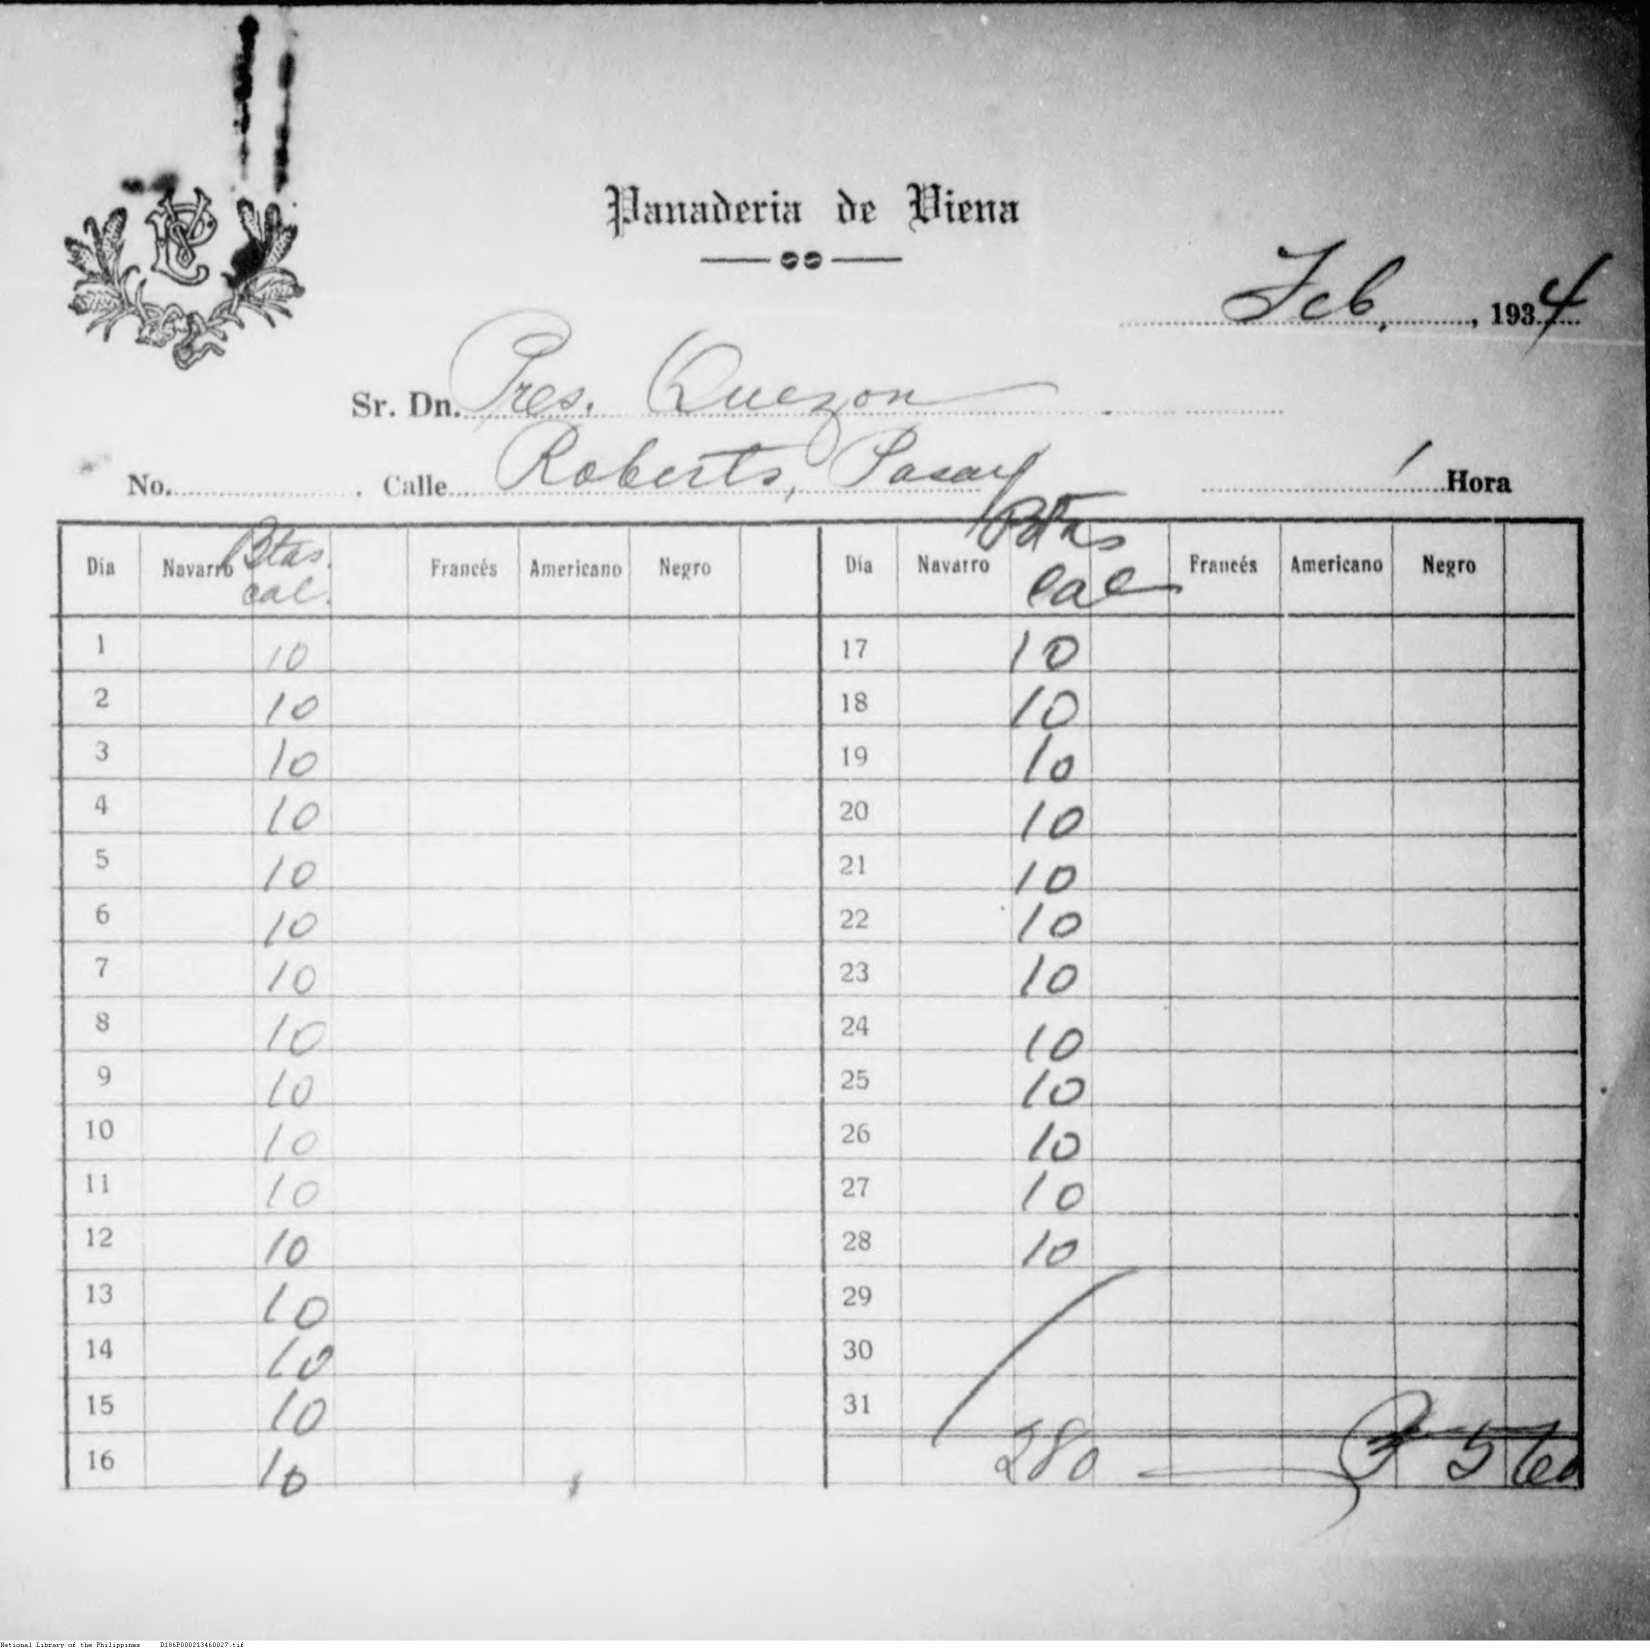 VPC
Panaderia de Viena
Feb, , 1934
Sr. Dn. Pres. Quezon
No. . Calle Roberts, Pasay Hora
Día Navarro Btas. cal. Francés Americano Negro Día Navarro Btas cal Francés Americano Negro
1 10 17 10
2 10 18 10
3 10 19 10
4 10 20 10
5 10 21 10
6 10 22 10
7 10 23 10
8 10 24 10
9 10 25 10
10 10 26 10
11 10 27 10
12 10 28 10
13 10 29
14 10 30
15 10 31
16 10 280 — ₱ 5 60
National Library of the Philippines D186P000213460027.tif